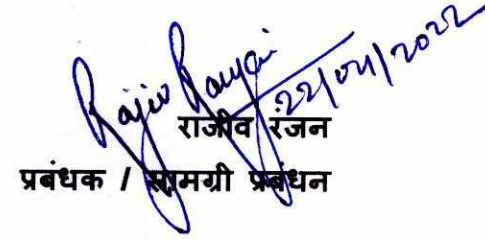 Rajiv Ranjan
22/04/2022
राजीव रंजन
प्रबंधक / सामग्री प्रबंधन